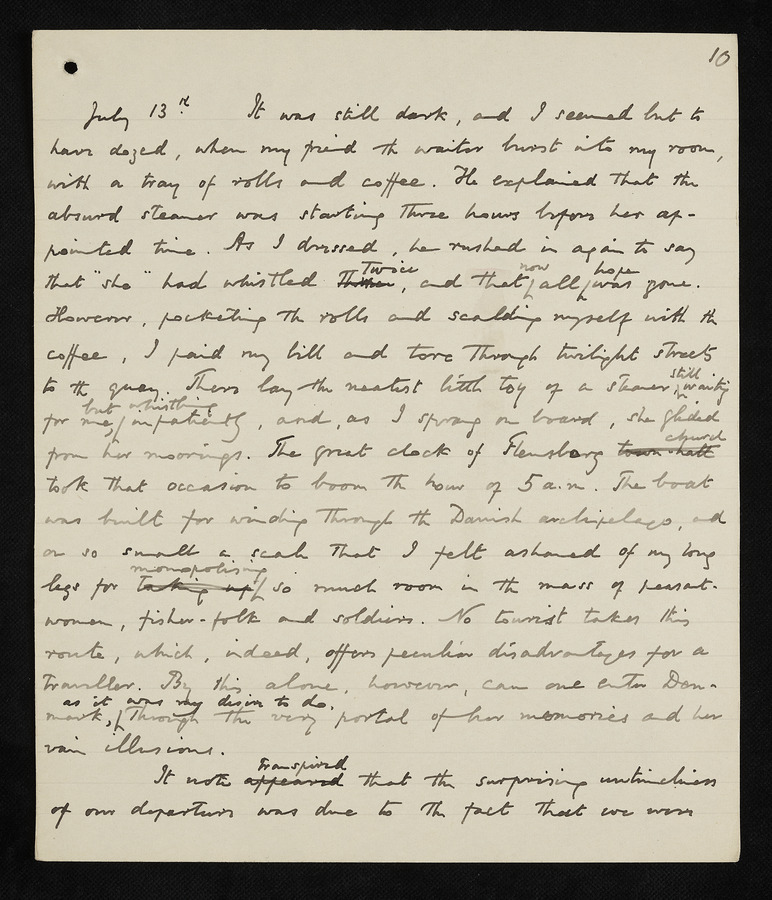 10
July 13th. It was still dark, and I seemed but to
have dozed, when my friend the waiter burst into my room,
with a tray of rolls and coffee. He explained that the
absurd steamer was starting three hours before her ap-
pointed time. As I dressed, he rushed in again to say
that "she" had whistled twice, and that now all hope was gone.
However, pocketing the rolls and scalding myself with the
coffee, I paid my bill and tore through twilight streets
to the quay. There lay the neatest little toy of a steamer, still waiting
for me, but whistling impatiently, and, as I sprang on board, she glided
from her moorings. The great clock of Flensborg town-hall church
took that occasion to boom the hour of 5 a.m. The boat
was built for winding through the Danish archipelago, and
on so small a scale that I felt ashamed of my long
legs for taking up monopolising so much room in the mass of peasant-
women, fisher-folk and soldiers. No tourist takes this
route, which, indeed, offers peculiar disadvantages for a
traveller. By this alone, however, can one enter Den-
mark, as it was my desire to do, through the very portal of her memories and her
vain illusions.
It appeared transpired that the surprising untimeliness
of our departure was due to the fact that we were